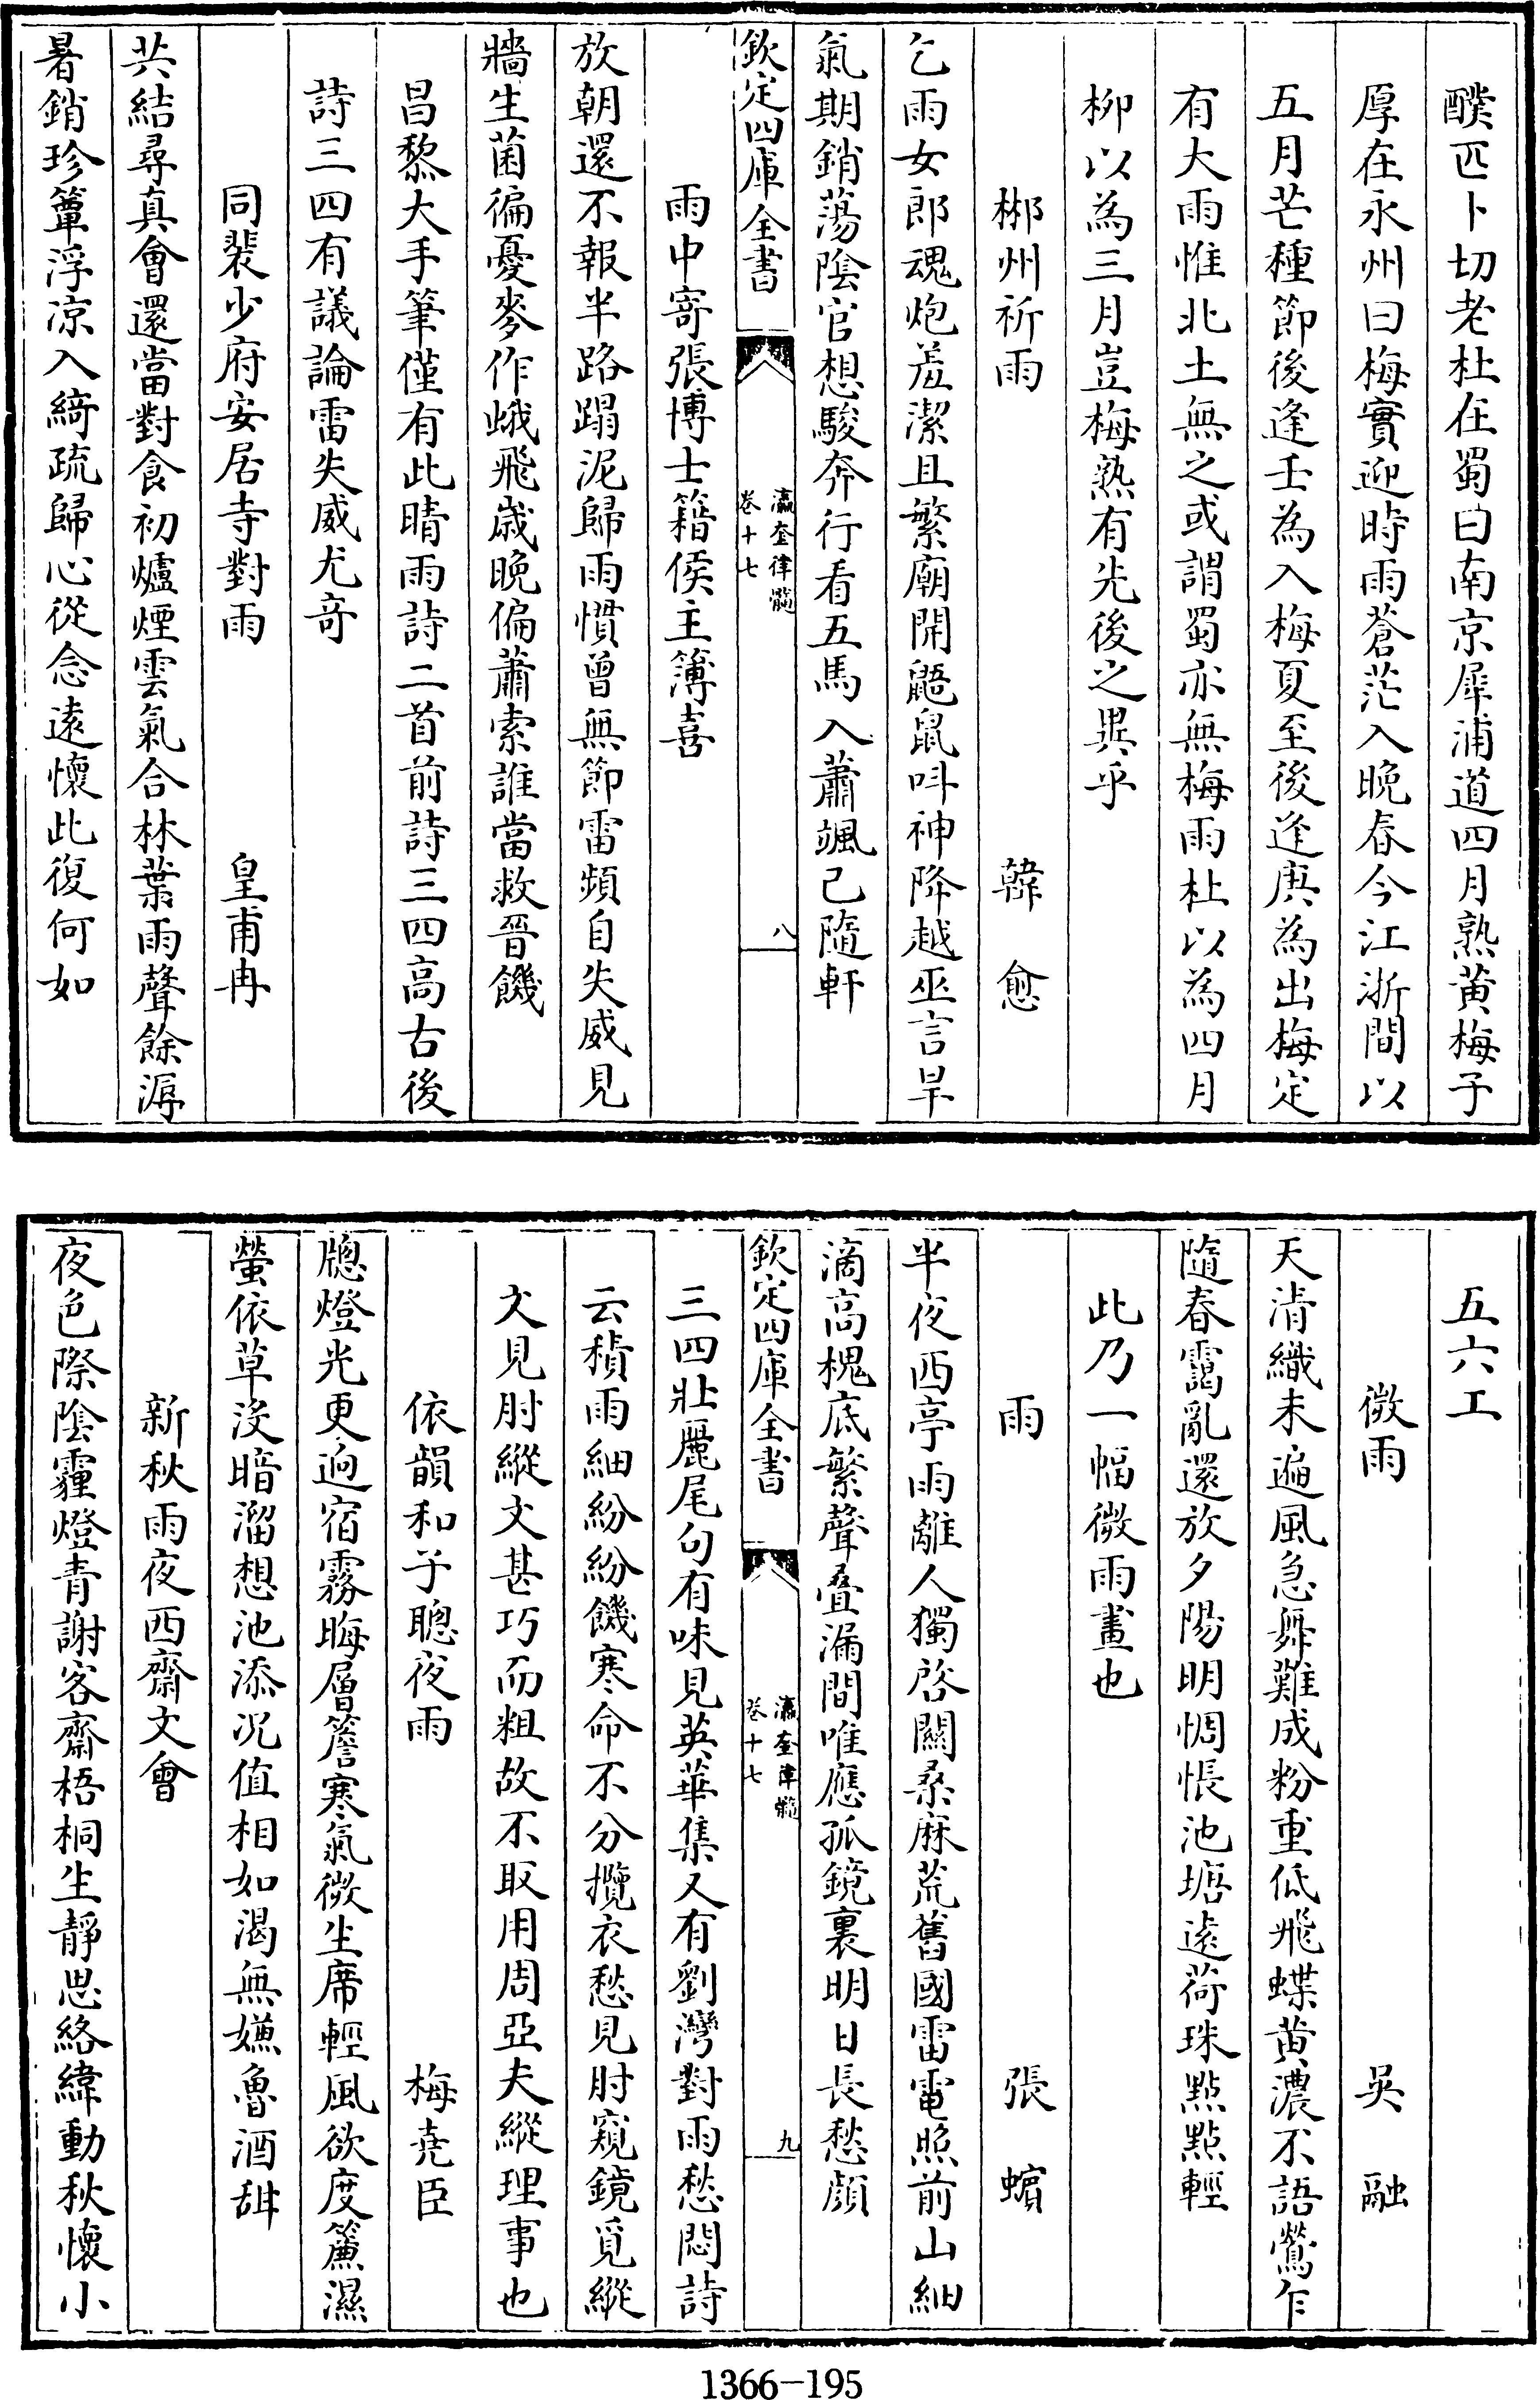 醭匹卜切老杜在蜀曰南京犀浦道四月熟黄梅子
厚在永州曰梅實迎時雨蒼茫入晚春今江浙間以
五月芒種節後逢壬為入梅夏至後逢庚為出梅定
有大雨惟北土無之或謂蜀亦無梅雨杜以為四月
柳以為三月豈梅熟有先後之異乎
郴州祈雨 韓愈
乞雨女郎魂炮羞潔且繁廟開鼯鼠呌神降越巫言旱
氣期銷蕩陰官想駿奔行看五馬入蕭颯已隨軒
欽定四庫全書
瀛奎律髓
卷十七
八
雨中寄張博士籍侯主簿喜
放朝還不報半路蹋泥歸雨慣曾無節雷頻自失威見
牆生菌徧憂麥作蛾飛歲晚偏蕭索誰當救晉饑
昌黎大手筆僅有此晴雨詩二首前詩三四高古後
詩三四有議論雷失威尤竒
同裴少府安居寺對雨 皇甫冉
共結尋真會還當對食初爐煙雲氣合林葉雨聲餘溽
暑銷珍簟浮凉入綺疏歸心從念遠懷此復何如
五六工
微雨 吳融
天清織未遍風急舞難成粉重低飛蝶黄濃不語鶯乍
隨春靄亂還放夕陽明惆悵池塘遠荷珠點點輕
此乃一幅微雨畫也
雨 張蠙
半夜西亭雨離人獨啓關桑麻荒舊國雷電照前山細
滴高槐底繁聲疊漏間唯應孤鏡裏明日長愁顔
欽定四庫全書
瀛奎律髓
卷十七
九
三四壯麗尾句有味見英華集又有劉灣對雨愁悶詩
云積雨細紛紛饑寒命不分攬衣愁見肘窺鏡覓縱
文見肘縱文甚巧而粗故不取用周亞夫縱理事也
依韻和子聰夜雨 梅堯臣
牕燈光更迥宿霧晦層簷寒氣微生席輕風欲度簾濕
螢依草没暗溜想池添况值相如渴無嫌魯酒甜
新秋雨夜西齋文會
夜色際陰霾燈青謝客齋梧桐生靜思絡緯動秋懷小
1366-195